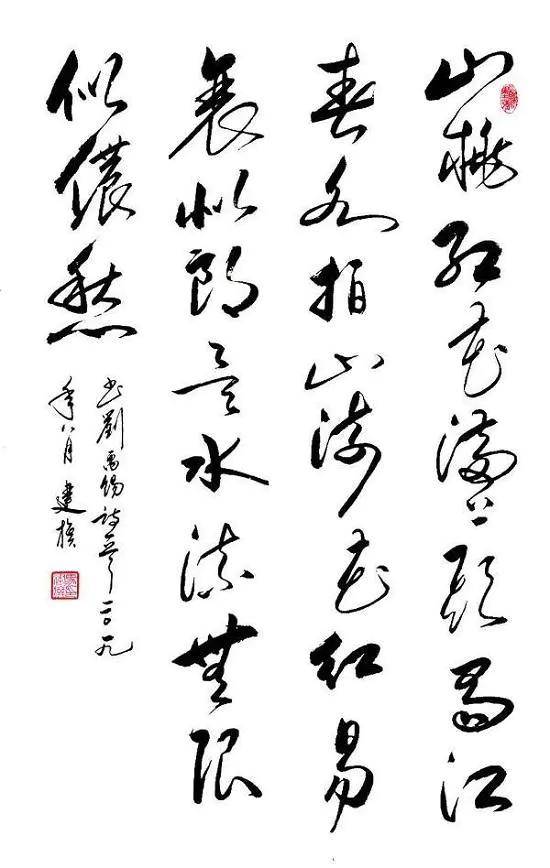 山桃红花满上头蜀江
春水拍山流花红易
衰似郎意水流無限
似儂愁
书劉禹锡詩一首二〇一九
年八月建